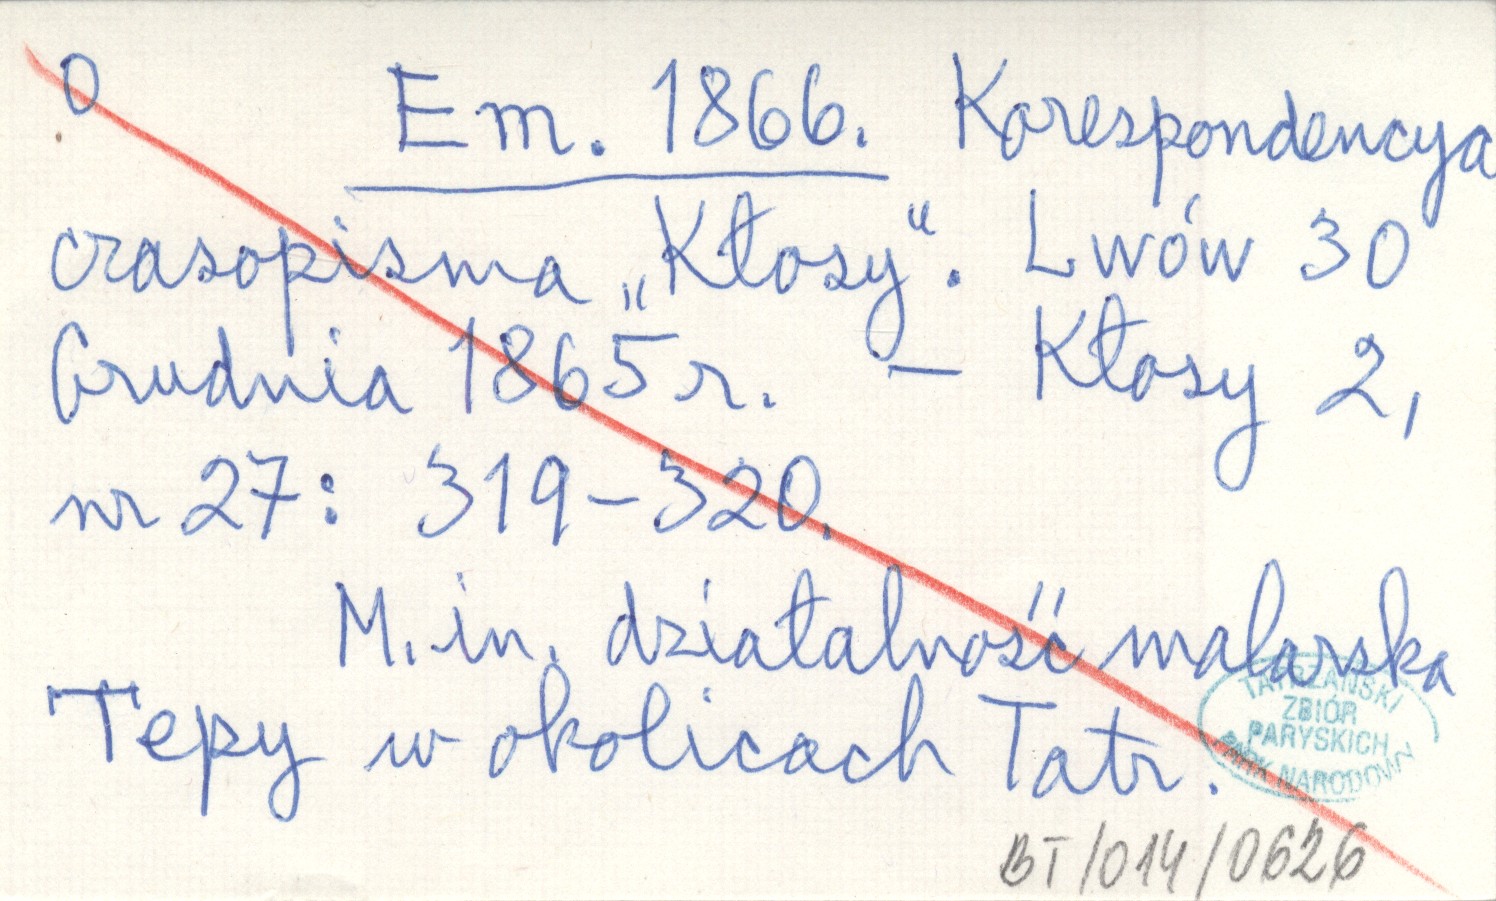 O Em. 1866. Korespondencya
czasopisma „Kłosy". Lwów 30
Grudnia 1865 r. – Kłosy 2,
nr 27: 319-320.
M. in. działalność malarska
Tepy w okolicach Tatr.
TATRZAŃSKI
ZBIÓR
PARYSKICH
PARK NARODOWY
BT/014/0626